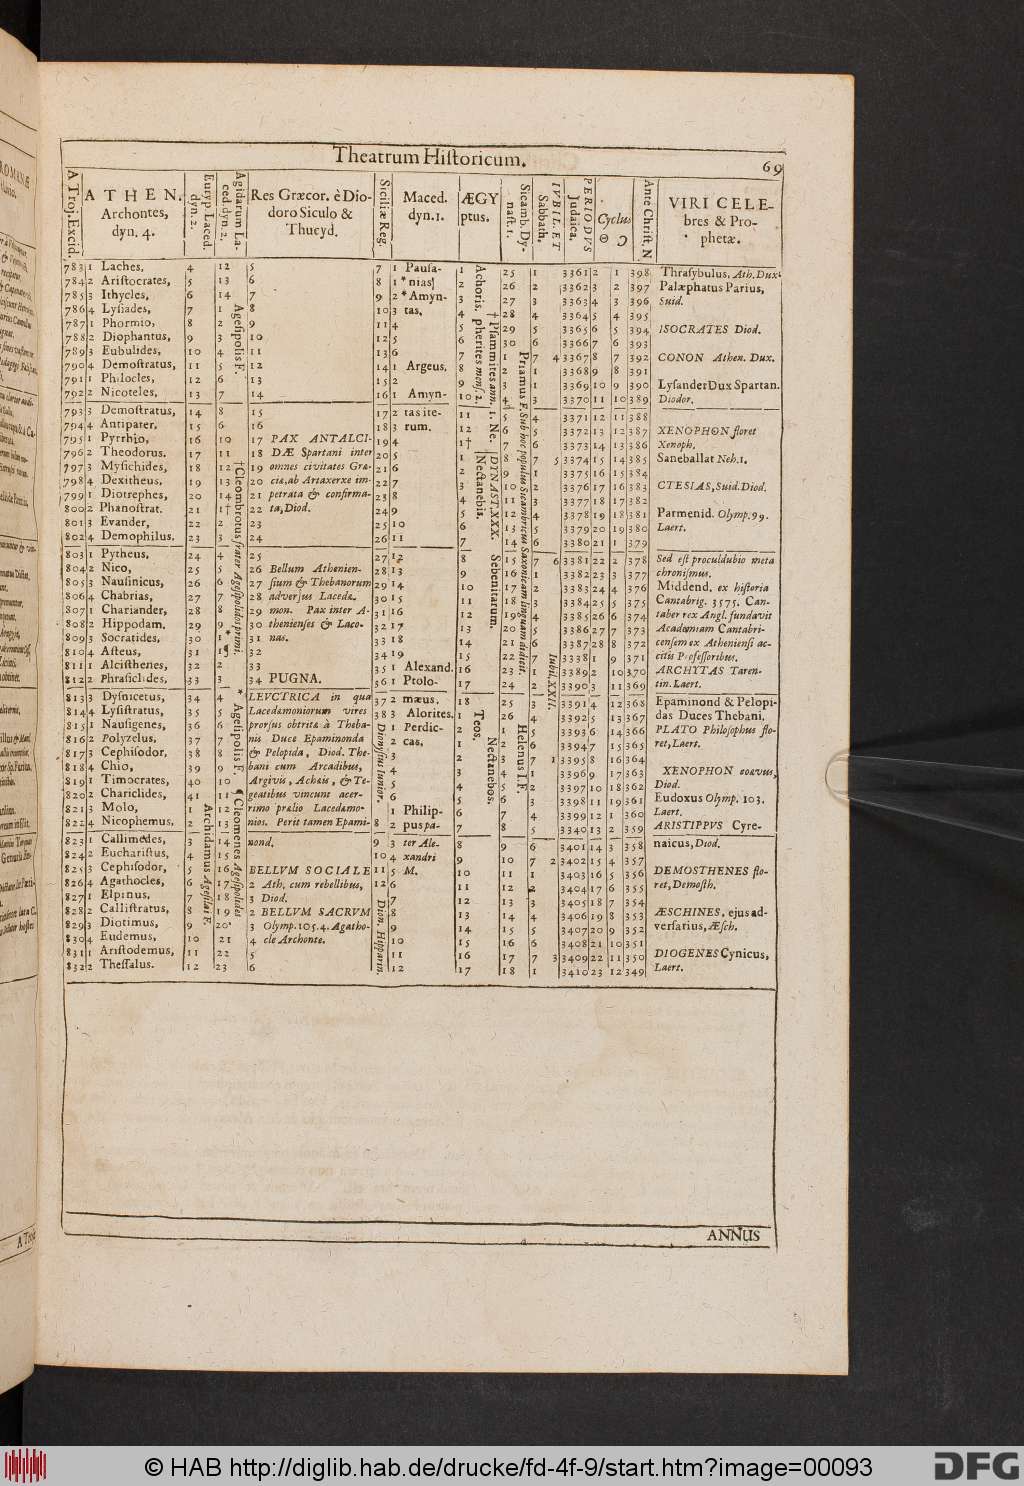 Theatrum Historicum. 69
A Troj. Excid. ATHEN. Archontes, dyn. 4. Euryp Laced. dyn. 2. Agidarum Laced. dyn. 2. Res Græcor. è Diodoro Siculo & Thucyd. Siciliæ Reg. Maced. dyn. 1. ÆGYptus. Sicamb. Dynast. 1. IVBIL. ET Sabbath. PERIODVS Judaica. Cyclus ☉ ☽ Ante Christ. N VIRI CELEbres & Prophetæ.
783 1 Laches, 4 12 5 7 1 Pausa- 1 25 1 3361 2 1 398 Thrasybulus, Ath. Dux
784 2 Aristocrates, 5 13 6 8 1 * nias¶ 2 26 2 3362 3 2 397 Palæphatus Parius,
785 3 Ithycles, 6 14 7 9 2 * Amyn- 3 27 3 3363 4 3 396 Suid.
786 4 Lysiades, 7 1 8 10 3 tas, 4 28 4 3364 5 4 395
787 1 Phormio, 8 2 9 11 4 5 29 5 3365 6 5 394 ISOCRATES Diod.
788 2 Diophantus, 9 3 10 12 5 6 30 6 3366 7 6 393
789 3 Eubulides, 10 4 11 13 6 7 1 7 4 3367 8 7 392 CONON Athen. Dux.
790 4 Demostratus, 11 5 12 14 1 Argeus. 8 2 1 3368 9 8 391
791 1 Philocles, 12 6 13 15 2 9 3 1 3369 10 9 390 Lysander Dux Spartan.
792 2 Nicoteles, 13 7 14 16 1 Amyn- 10 4 3 3370 11 10 389 Diodor.
793 3 Demostratus, 14 8 15 17 2 tas ite- 11 5 4 3371 12 11 388
794 4 Antipater, 15 6 16 18 3 rum. 12 6 5 3372 13 12 387 XENOPHON floret
795 1 Pyrrhio, 16 10 17 PAX ANTALCI- 19 4 1† 7 6 3373 14 13 386 Xenoph.
796 2 Theodorus. 17 11 18 DÆ Spartani inter 20 5 1 8 7 5 3374 15 14 385 Saneballat Neh. 1.
797 3 Mysichides, 18 12 19 omnes civitates Græ- 21 6 2 9 1 3375 16 15 384
798 4 Dexitheus. 19 13 20 ciæ, ab Artaxerxe im- 22 7 3 10 2 3376 17 16 383 CTESIAS, Suid. Diod.
799 1 Diotrephes, 20 14 21 petrata & confirma- 23 8 4 11 3 3377 18 17 382
800 2 Phanostrat. 21 1† 22 ta, Diod. 24 9 5 12 4 3378 19 18 381 Parmenid. Olymp. 99.
801 3 Evander, 22 2 23 25 10 6 13 5 3379 20 19 380 Laert.
802 4 Demophilus. 23 3 24 26 11 7 14 6 3380 21 1 379
803 1 Pytheus, 24 4 25 27 12 8 15 7 6 3381 22 2 378 Sed est proculdubio meta
804 2 Nico, 25 5 26 Bellum Athenien- 28 13 9 16 1 3382 23 3 377 chronismus.
805 3 Nausinicus, 26 6 27 sium & Thebanorum 29 14 10 17 2 3383 24 4 376 Middend. ex historia
806 4 Chabrias, 27 7 28 adversus Lacedæ. 30 15 11 18 3 3384 25 5 375 Cantabrig. 3575. Can-
807 1 Chariander, 28 8 29 mon. Pax inter A- 31 16 12 19 4 3385 26 6 374 taber rex Angl. fundavit
808 2 Hippodam. 29 9 30 thenienses & Laco- 32 17 13 20 5 3386 27 7 373 Academiam Cantabri-
809 3 Socratides, 30 1* 31 nas. 33 18 14 21 6 3387 28 8 372 censem ex Atheniensi ac-
810 4 Asteus, 31 1¶ 32 34 19 15 22 7 3338 1 9 371 citis Professoribus.
811 1 Alcisthenes, 32 2 33 35 1 Alexand. 16 23 1 3389 2 10 370 ARCHYTAS Taren-
812 2 Phrasiclides, 33 3 34 PUGNA. 36 1 Ptolo- 17 24 2 3390 3 11 369 tin. Laert.
813 3 Dysnicetus, 34 4 LEVCTRICA in qua 37 2 mæus. 18 25 3 3391 4 12 368 Epaminond & Pelopi-
814 4 Lysistratus, 35 5 Lacedæmoniorum vires 38 3 Alorites. 1 26 4 3392 5 13 367 das Duces Thebani.
815 1 Nausigenes, 36 6 prorsus obtritæ à Theba- 1 Perdic- 2 1 5 3393 6 14 366 PLATO Philosophus flo-
816 2 Polyzelus, 37 7 nis Duce Epaminonda 2 cas, 1 2 6 3394 7 15 365 ret, Laert.
817 3 Cephisodor, 38 8 & Pelopida, Diod. The- 3 2 3 7 1 3395 8 16 364
818 4 Chio, 39 9 bani cum Arcadibus, 4 3 4 1 3396 9 17 363 XENOPHON coævus,
819 1 Timocrates, 40 10 Argivis, Achæis, & Te- 5 4 5 2 3397 10 18 362 Diod.
820 2 Chariclides, 41 11 geatibus vincunt acer- 6 5 6 3 3398 11 19 361 Eudoxus Olymp. 103.
821 3 Molo, 1 12 rimo prælio Lacedæmo- 1 Philip- 6 7 4 3399 12 1 360 Laert.
822 4 Nicophemus. 2 13 nios. Perit tamen Epami- 8 2 pus pa- 7 8 5 3400 13 2 359 ARISTIPPVS Cyre-
823 1 Callimedes, 3 14 nond. 9 3 ter Ale- 8 9 6 3401 14 3 358 naicus, Diod.
824 2 Eucharistus, 4 15 10 4 xandri 9 10 7 2 3402 15 4 357
825 3 Cephisodor, 5 16 BELLVM SOCIALE 11 5 M. 10 11 1 3403 16 5 356 DEMOSTHENES flo-
826 4 Agathocles, 6 17 2 Ath. cum rebellibus, 12 6 11 12 2 3404 17 6 355 ret, Demosth.
827 1 Elpinus, 7 18 3 Diod. 7 12 13 3 3405 18 7 354
828 2 Callistratus, 8 19 2 BELLVM SACRVM 8 13 14 4 3406 19 8 353 ÆSCHINES, ejus ad-
829 3 Diotimus, 9 20 3 Olymp. 105. 4. Agatho- 9 14 15 5 3407 20 9 352 versarius, Æsch.
830 4 Eudemus, 10 21 4 cle Archonte. 10 15 16 6 3408 21 10 351
831 1 Aristodemus, 11 22 5 11 16 17 7 3 3409 22 11 350 DIOGENES Cynicus,
832 2 Thessalus. 12 23 6 12 17 18 1 3410 23 12 349 Laert.
Agesipolis F.
†Cleombrotus frater Agesipolidos primi.
* Agesipolis F.
¶ Cleomenes Agesipolidos
Archidamus Agesilai F.
Dionysius Junior.
Dion. Hipparin.
Achoris.
Pherites mens. 2.
Nectanebis.
† Psammites ann. 1. Ne.
DYNAST. XXX. Sebenitarum.
Teos.
Nectanebos.
Priamus F. Sub hoc populus Sicambricus Saxonicam linguam didicit.
Helenus I. F.
Iubil. XXII.
ANNUS
© HAB http://diglib.hab.de/drucke/fd-4f-9/start.htm?image=00093
DFG